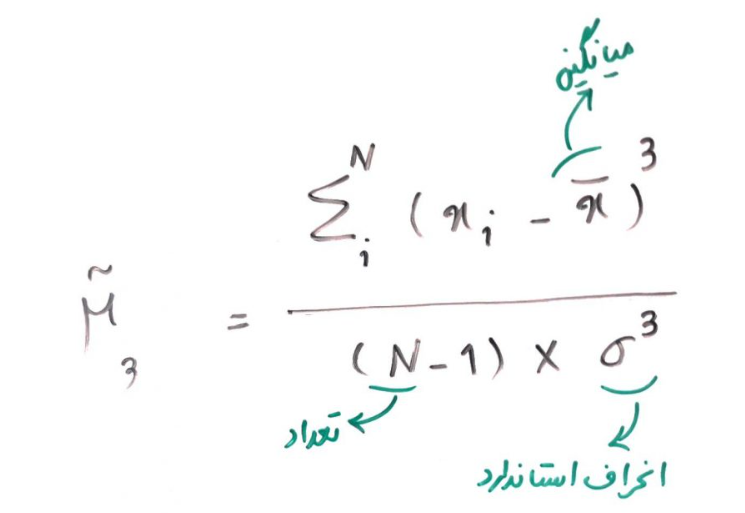 میانگین
N
∑ᵢ (xᵢ - x̄)³
μ̃₃ =
(N-1) × σ³
تعداد
انحراف استاندارد